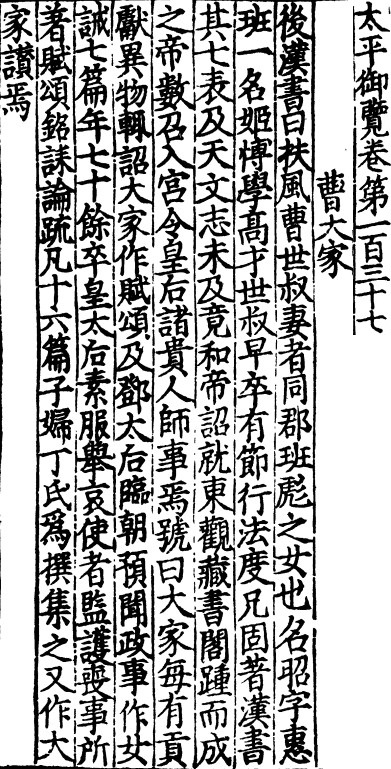 太平御覽卷第一百三十七
曹大家
後漢書曰扶風曹世叔妻者同郡班彪之女也名昭字惠
班一名姬愽學高才世叔早卒有節行法度兄固著漢書
其七表及天文志未及竟和帝詔就東觀藏書閣踵而成
之帝數召入宮令皇后諸貴人師事焉號曰大家每有貢
獻異物輙詔大家作賦頌及鄧太后臨朝預聞政事作女
誡七篇年七十餘卒皇太后素服舉哀使者監護喪事所
著賦頌銘誄論䟽凡十六篇子婦丁氏爲撰集之又作大
家讃焉